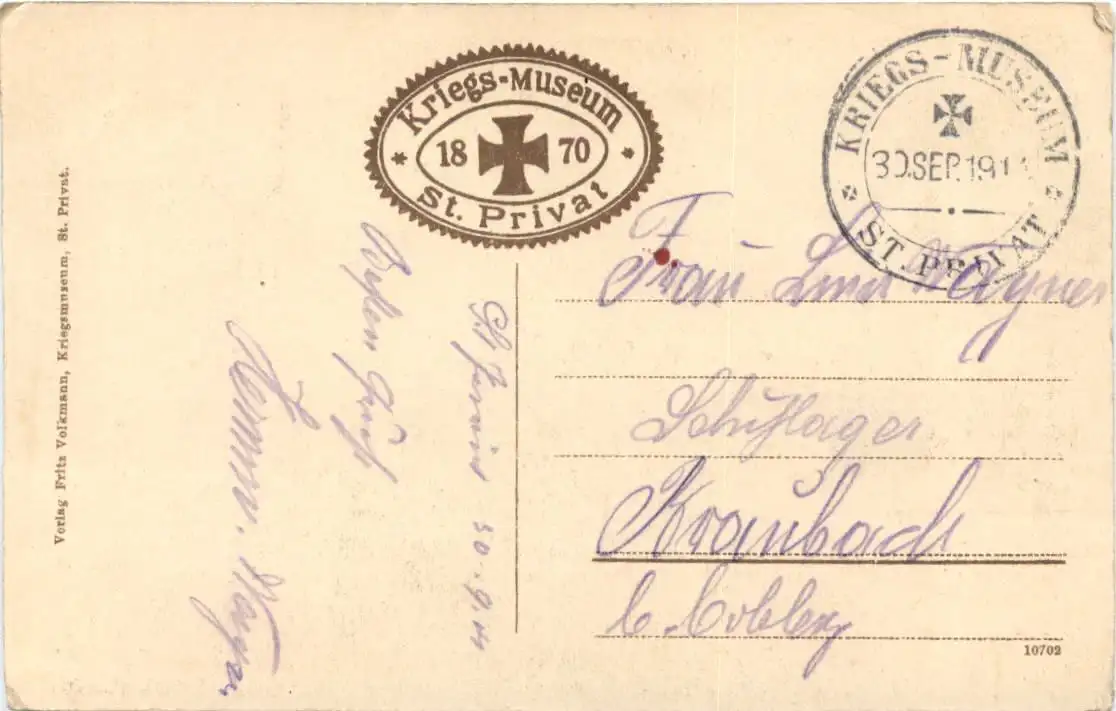 Kriegs-Museum
18 70
St. Privat
KRIEGS-MUSEUM
30.SEP.191
ST. PRIVAT
Verlag Fritz Volkmann, Kriegsmuseum, St. Privat.
St. Privat 30.9.14
Besten Gruß
Wagner
Frau Wagner
Schuhlager
b. Coblenz
10702